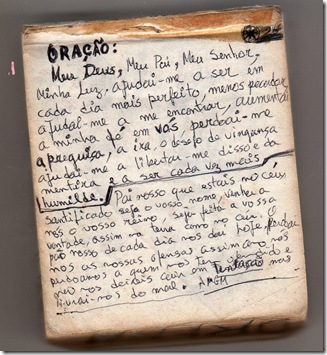 ORAÇÃO:
Meu Deus, Meu Pai, Meu Senhor,
Minha Luz, ajudai-me a ser em
cada dia mais perfeito, menos pecador
ajudai-me a me encontrar, aumentai
a minha fé em vós, perdoai-me
a preguiça, a ira, o desejo de vingança
ajudai-me a libertar-me disso e da
mentira a ser cada vez mais
humilde. Pai nosso que estais no ceus
santificado seja o vosso nome, venha a
nós o vosso reino, seja feita a vossa
vontade, assim na terra como no ceu. O
pão nosso de cada dia nos dai hoje, perdoai
nos as nossas ofensas assim como nós
perdoamos a quem nos tem
não nos deixeis cair em Tentação mas
livrai-nos do mal.